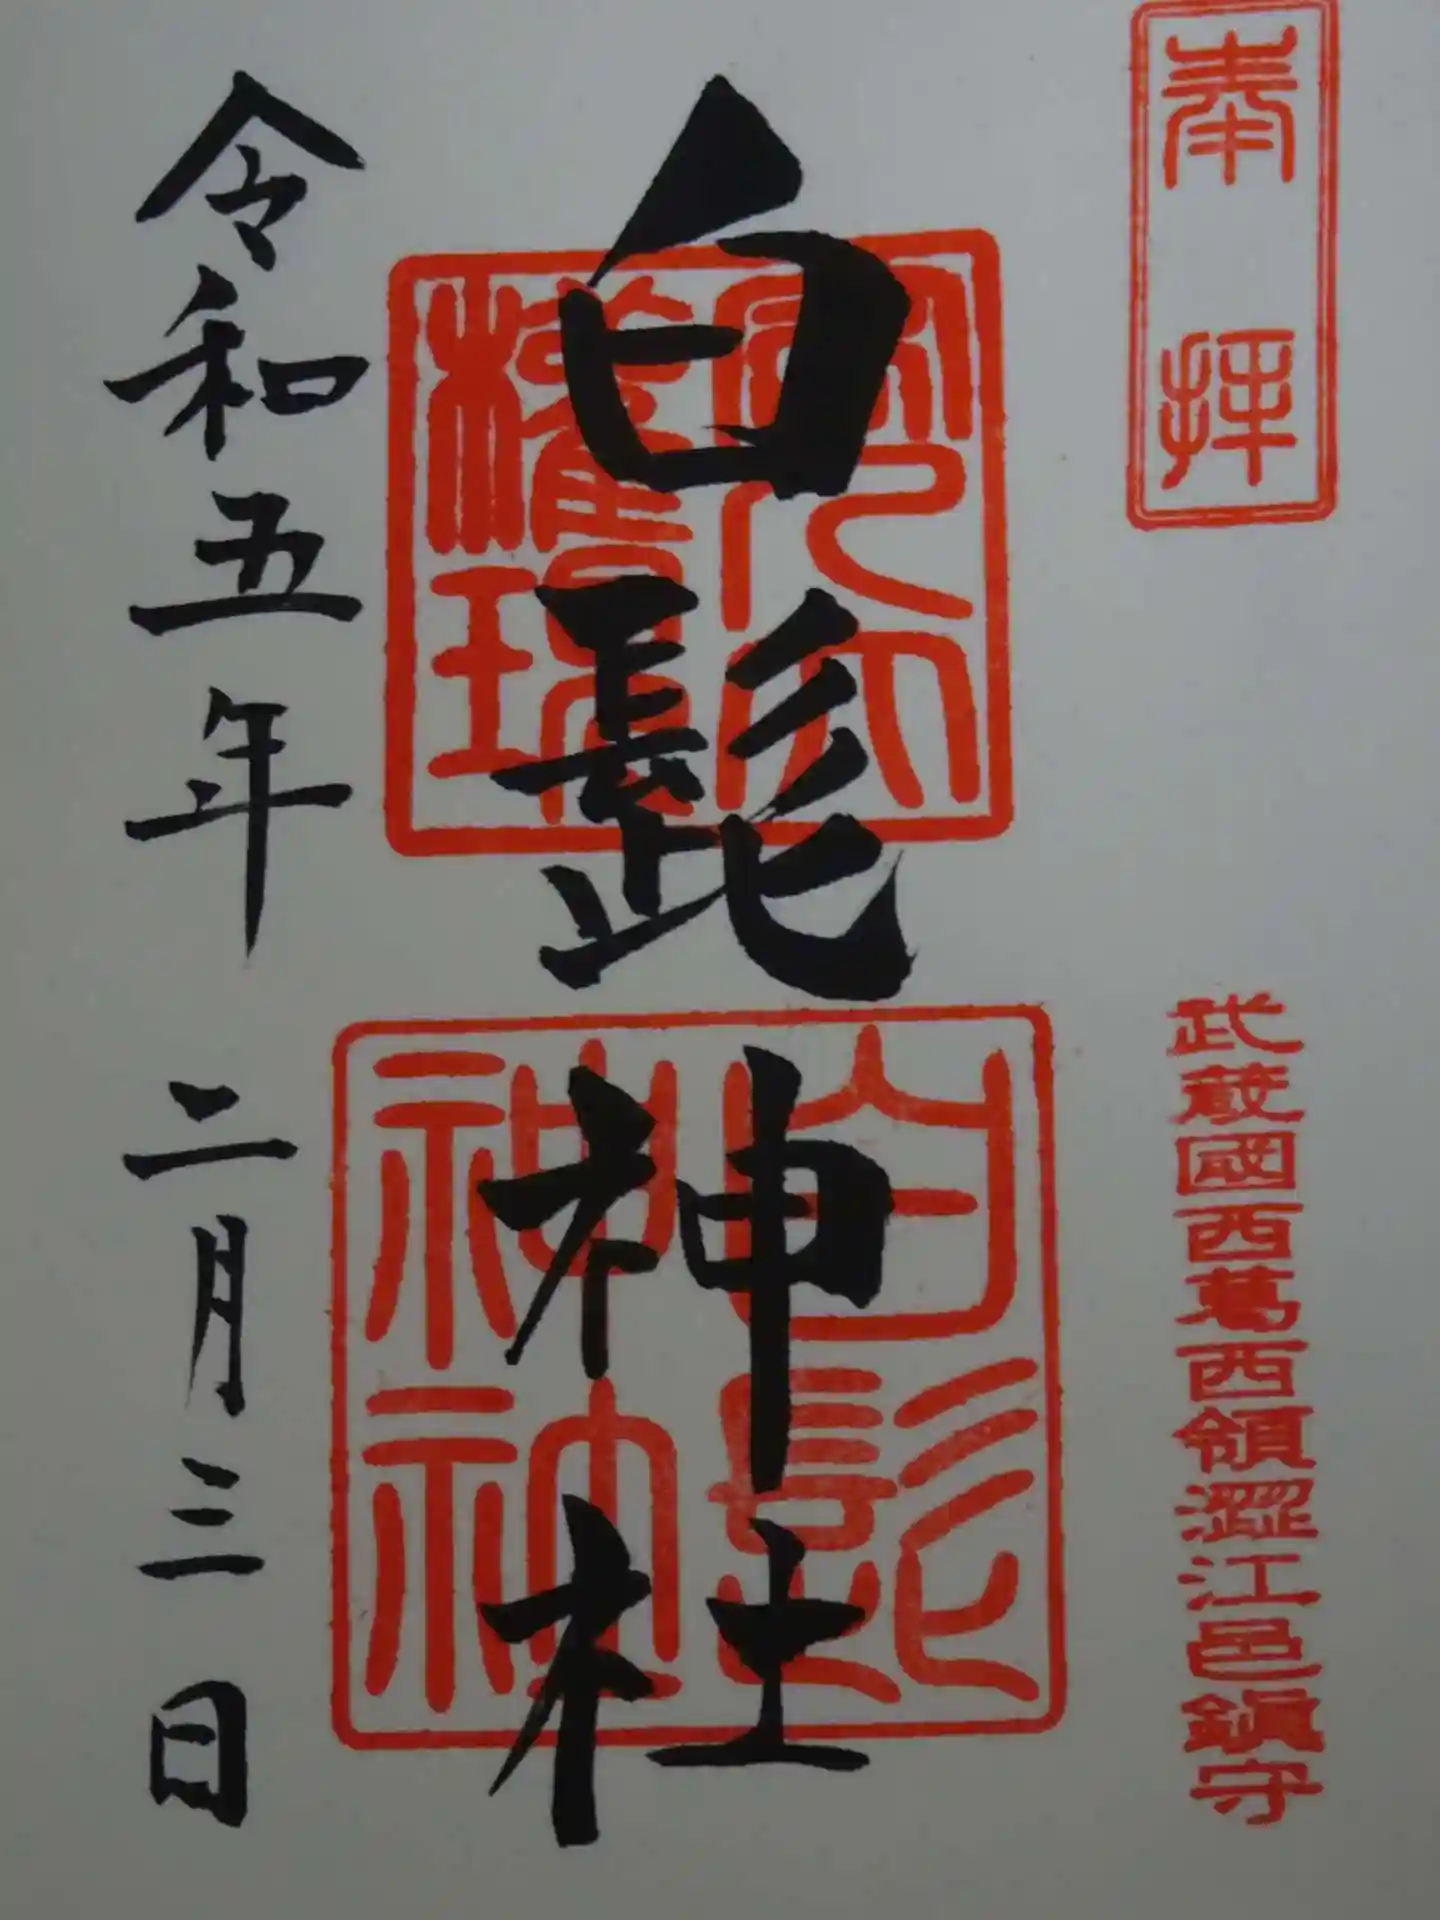 奉拝
武蔵國西葛西領澀江邑鎭守
白髭神社
白髭
神社
令和五年 二月三日